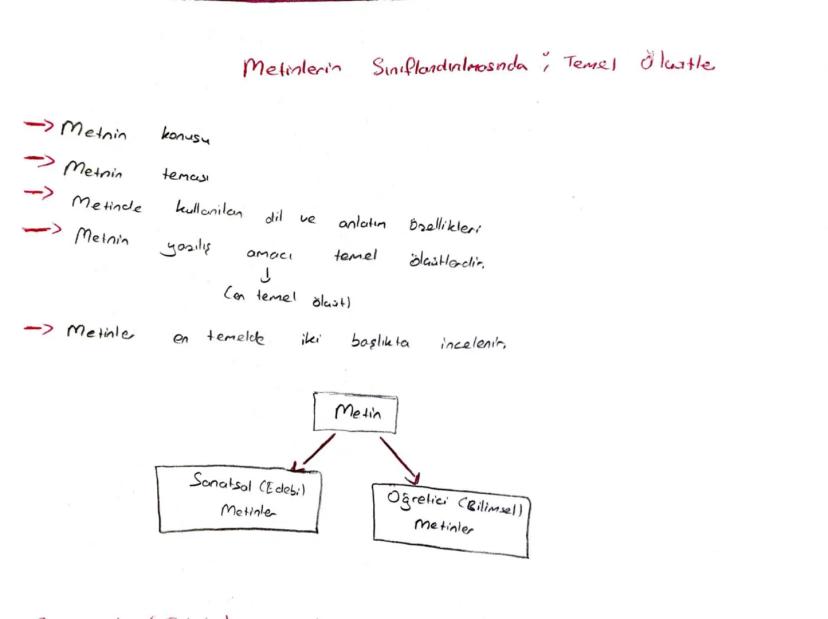 Metinlerin Sınıflandırılmasında ; Temel Ölçütle
→ Metnin konusu
→ Metnin teması
→ Metinde kullanılan dil ve anlatım özellikleri
→ Metnin yazılış amacı temel ölçütlerdir.
↓
(en temel ölçüt)
→ Metinler en temelde iki başlıkta incelenir.
Metin
Sanatsal (Edebi)
Metinler
Öğretici (Bilimsel)
Metinler